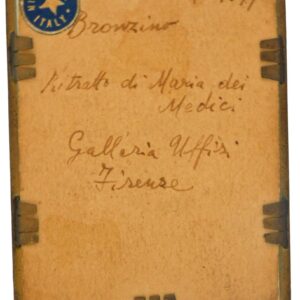 ITALY
Bronzino
Ritratto di Maria dei
Medici
Galleria Uffizi
Firenze